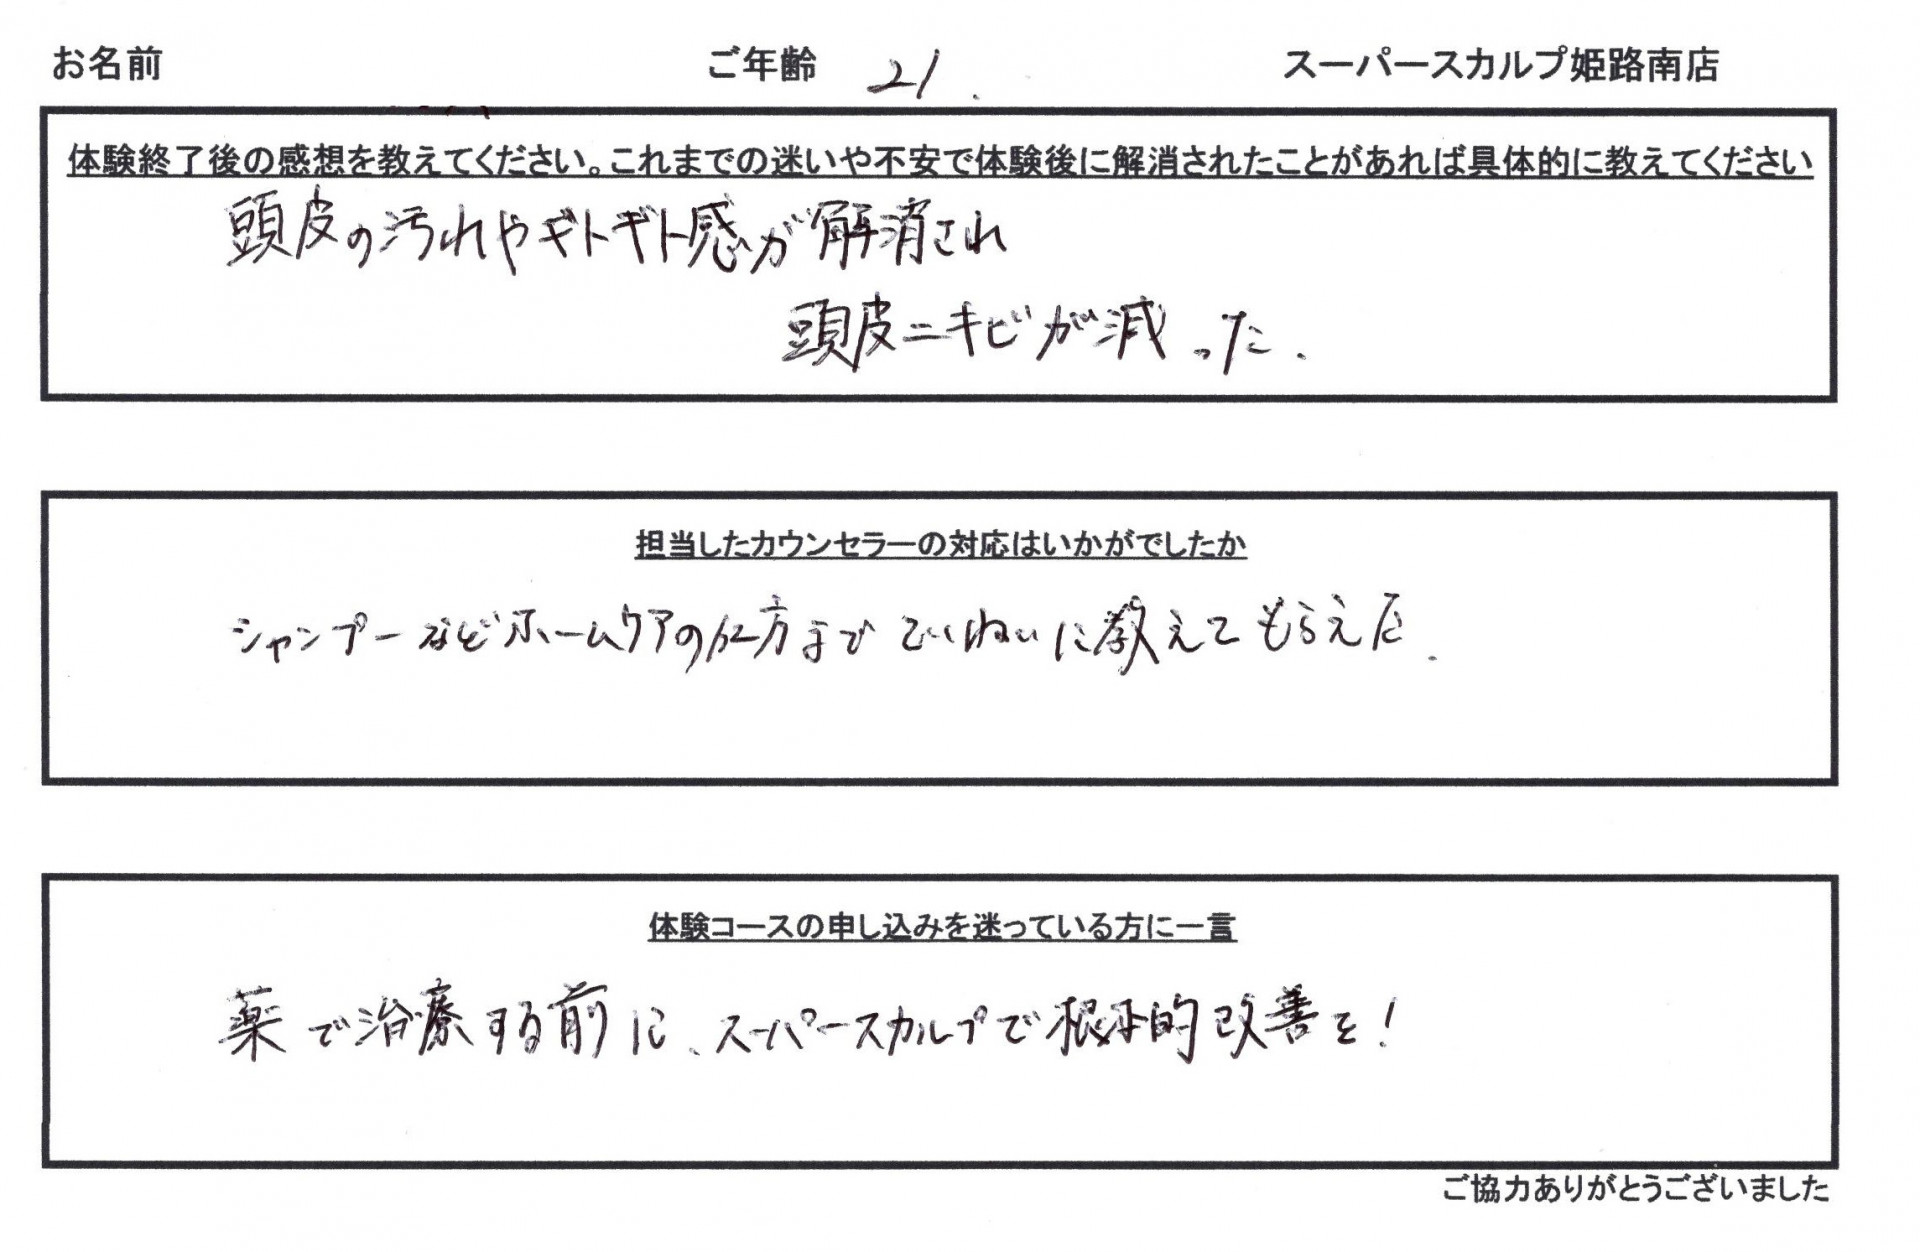 お名前 ご年齢 21. スーパースカルプ姫路南店
体験終了後の感想を教えてください。これまでの迷いや不安で体験後に解消されたことがあれば具体的に教えてください
頭皮の汚れやギトギト感が解消され
頭皮ニキビが減った.
担当したカウンセラーの対応はいかがでしたか
シャンプーなどホームケアの仕方までていねいに教えてもらえた.
体験コースの申し込みを迷っている方に一言
薬で治療する前に、スーパースカルプで根本的改善を!
ご協力ありがとうございました